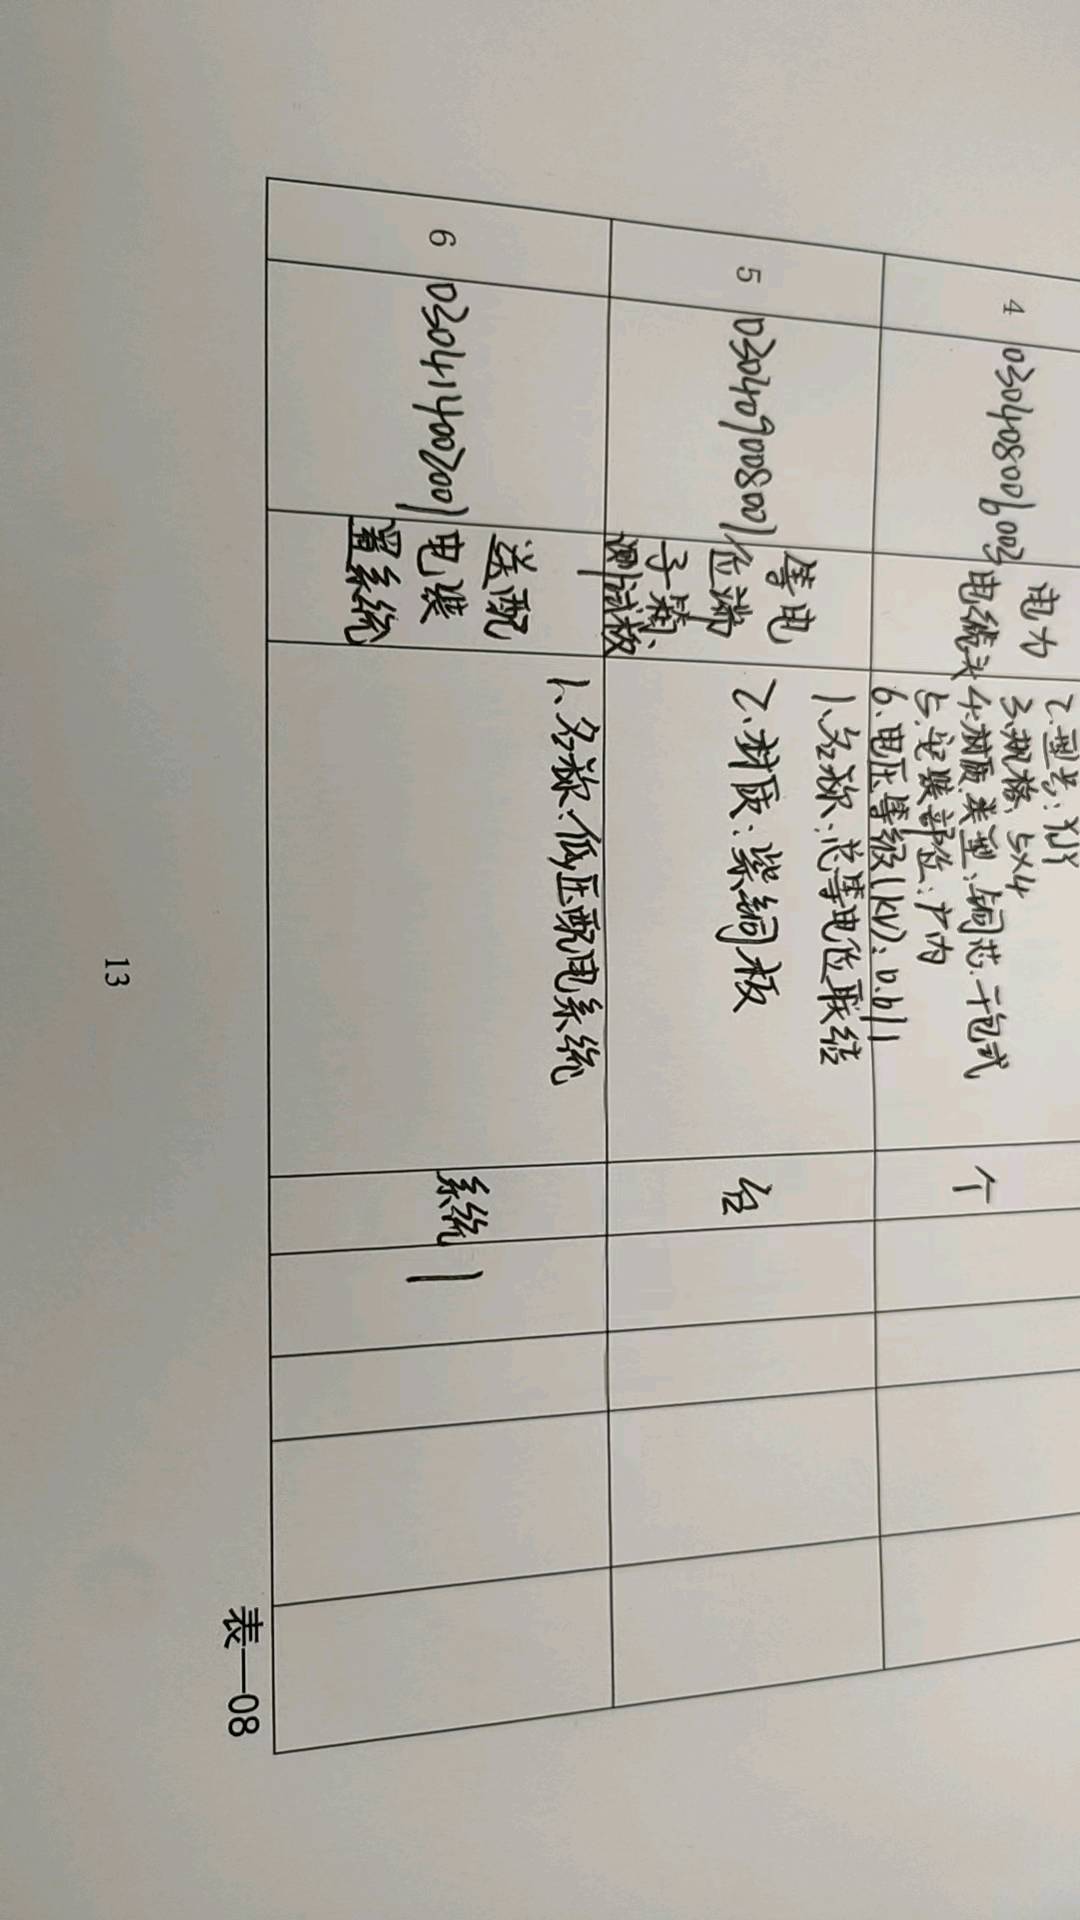 4
030408006003
电力
电缆头
3.规格：5×4
4.材质类型：铜芯.干包式
5.安装部位：户内
6.电压等级(kV)：0.6/1
个
5
030409008001
等电
位端
子箱、
测试板
1.名称：总等电位联结
2.材质：紫铜板
台
6
0304114002001
送配
电装
置系统
1.名称：低压配电系统
系统
1
表—08
13